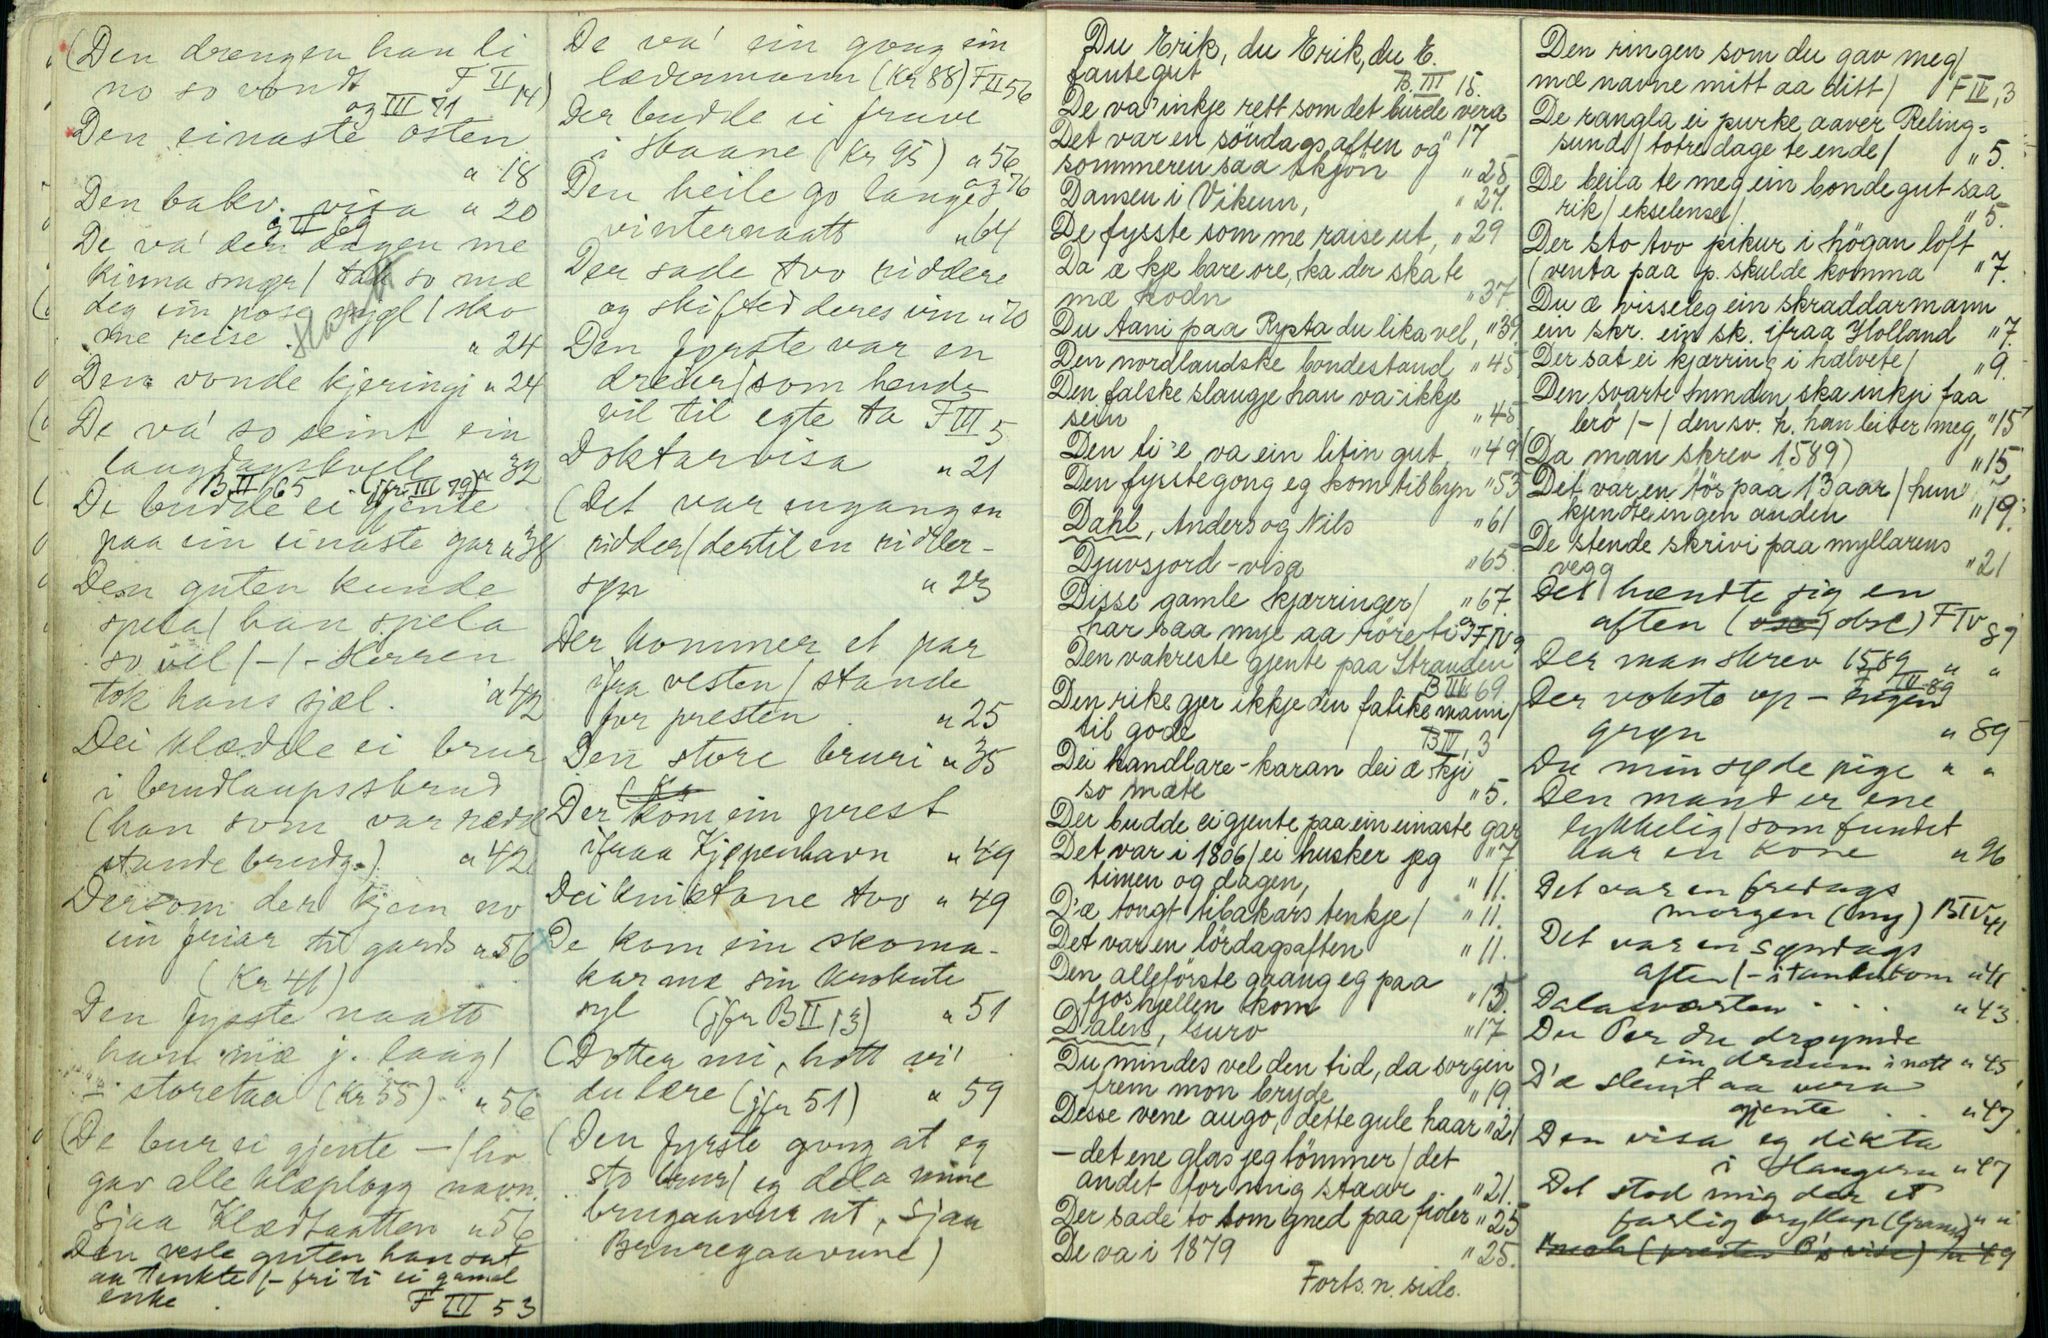 (Den drengen han li
no so vondt F II 14)
og III 71
Den einaste osten
" 18
Den bakv. visa " 20
De va' den dagen me
kinna smør / so mæ
deg ein pose mygl / sko
me reise. " 24
Den vonde kjeringi " 24
De va' so seint ein
laugdagskvell " 32
B II 65 (jfr III 79)
De budde ei gjente
paa ein einaste gar " 38
Den guten kunde
spela / han spela
so vel / - / - Herren
tok hans sjæl. " 42
Dei klædde ei brur
i brudlaupsskrud
(han som var rædd
stande brudg.) " 42
Dersom der kjem no
ein friar til gards " 56
(Kr 41)
Den fysste naatt
han mæ j. laag /
i storetaa (Kr 55) " 56
(De bur ei gjente - / ho
gav alle klæplagg navn.
Sjaa Klædtaatten " 56
Den vesle guten han sat
aa tenkte / - fri ti ei gamal
enke. F III 53
De va' ein gong ein
lædermann (Kr 88) F II 56
Der budde ei fruve
i Skaane (Kr 95) " 56
og 76
Den heile go lange
vinternaatt " 64
Der sade tvo riddere
og skifted deres vin " 70
Den fyrste var en
dreiar / som hende
vil til egte ta F III 5
Doktarvisa " 21
(Det var engang en
ridder / dertil en ridder-
søn " 23
Der kommer et par
ifra vesten / stande
for presten. " 25
Den store bruri " 35
Der kom ein prest
ifraa Kjøpenhavn " 49
Dei knektane tvo " 49
De kom ein skoma-
kar mæ sin krokute
syl (jfr B II, 3) " 51
(Dotter mi, hott vi'
du lære (jfr 51) " 59
(Den fyrste gong at eg
sto brur / eg dela mine
brugaavur ut, Sjaa
Bruregaavune)
Du Erik, du Erik, du E.
fantegut B. III 15.
De va' inkje rett som det burde vera
" 17
Det var en söndagsaften og
sommeren saa skjön " 25
Dansen i Vikeun, " 27.
De fysste som me raise ut, " 29
Da æ kje bare ore, ka der ska te
mæ kodn " 37
Du tani paa Rysta du lika vel, " 39
Den nordlandske bondestand " 45
Den falske slangje han va ikkje
sein " 45
Den ti 'e va ein litin gut " 49
Den fysste gong eg kom til byn " 53
Dahl, Anders og Nils " 61
Djuvsjord - visa " 65
Disse gamle kjærringer /
har saa mye aa röre ti " 67.
og F IV 9
Den vakreste gjente paa Stranden
B III 69
Den rike gjer ikkje den fatike mann /
til gode B IV, 3
Dei handlare - karan dei æ kji
so mæte " 5.
Der budde ei gjente paa ein einaste gar
" 7
Det var i 1806 / ei husker jeg
timen og dagen, " 11.
D'æ tongt tibakars tenkje / " 11.
Det var en lördagsaften " 11.
Den alleförste graang eg paa
fjoshjellen kom " 15.
Dalen, Guro " 17
Du mindes vel den tid, da sorgen
frem mon bryde " 19
Desse vene augo, dette gule haar " 21
- det ene glas jeg tömmer / det
andet for mig staar. " 21.
Der sade to som gned paa fioler " 25
De va i 1879 " 25.
Forts. n. side.
Den ringen som du gav meg /
mæ navne mitt aa ditt / F IV, 3
De rangla ei purke aaver Reling-
sund / totre dage te ende / " 5.
De beila te meg ein bonde gut saa
rik / ekselensel / " 5.
Der sto tvo pikur i högan loft
(venta paa p. skulde komma " 7.
Du æ visseleg ein skraddarmann
ein skr. ein sk. ifraa Holland " 7.
Der sat ei kjærring i hælvete / " 9.
Den svarte hunden ska inkji faa
brö / - / den sv. h. han biter meg, " 15
(Da man skrev 1589) " 15
Det var en tös paa 13 aar / hun
kjendte ingen anden " 19.
De stende skrivi paa myllarens
vegg " 21
Det hændte sig en
aften ( dsl) F IV 89
Der man skrev 1589 " "
IV 89
Der vokste op - Ingen
grøn " 89
Du min søde pige " "
Den mand er ene
lykkelig / som fundet
har en kone " 96
Det var en fredags
morgen (ny) B IV 41
Det var en søndags
aften / - i tankukom " 41
Dalavarten . . . " 43.
Du Per du drøymde
ein draum i natt " 45
D'æ slemt aa vera
gjente . . " 47.
Den visa eg dikta
i Haugern " 47
Det stod mig der et
farlig bryllup (Gramo) " "
(presten P's vise) " 49